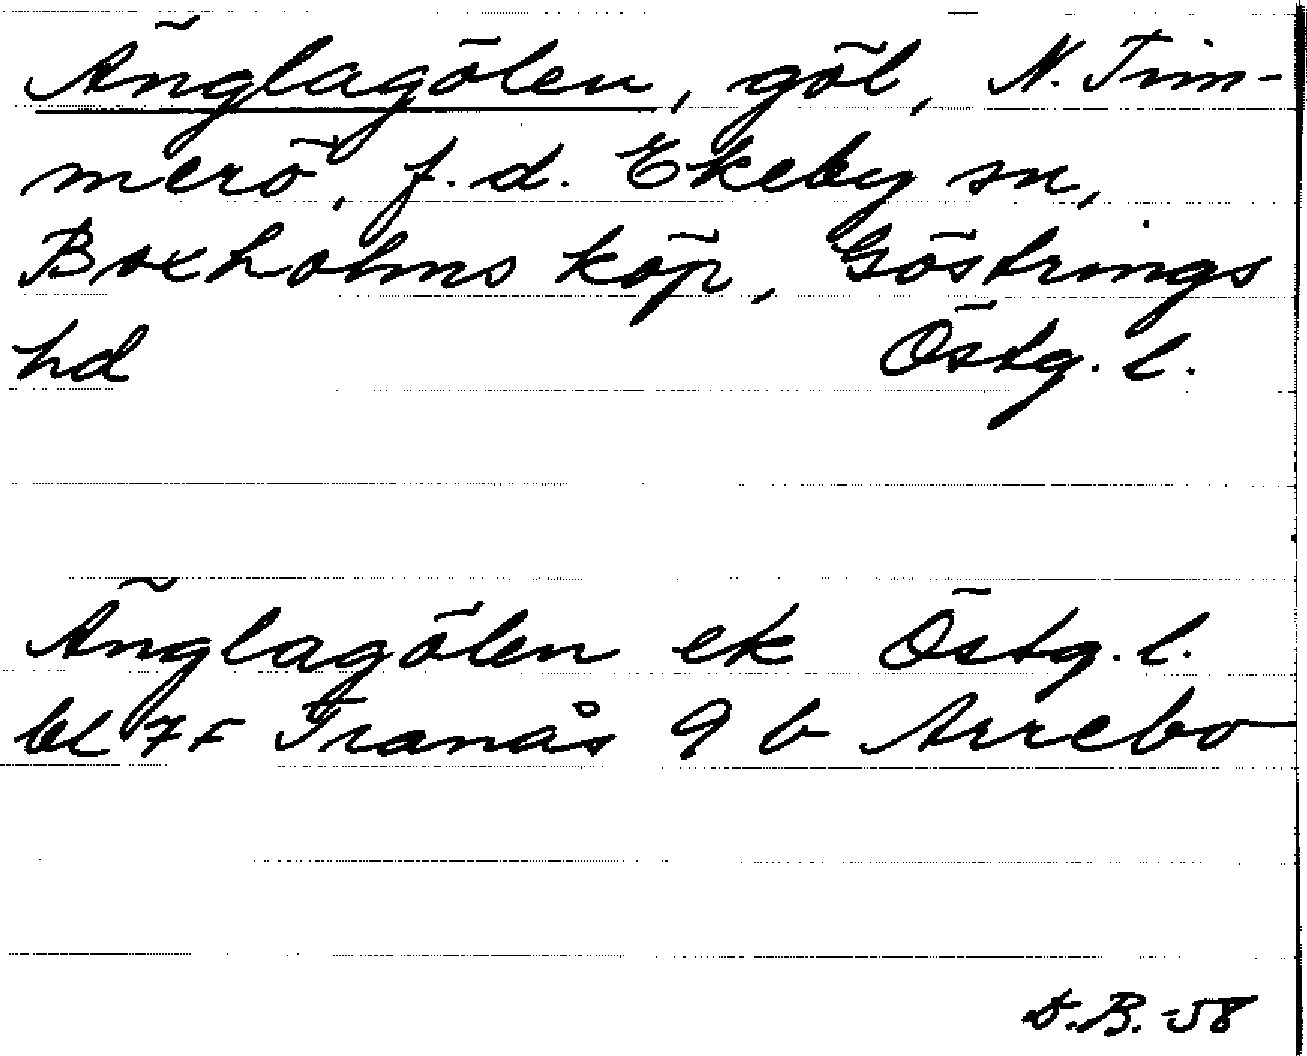 Änglagölen, göl, N. Tim-
merö, f. d. Ekeby sn,
Boxholms köp, Göstrings
hd Östg. l.
Änglagölen ek Östg. l.
bl 7F Tranås 9 b Arrebo
D.B. -58